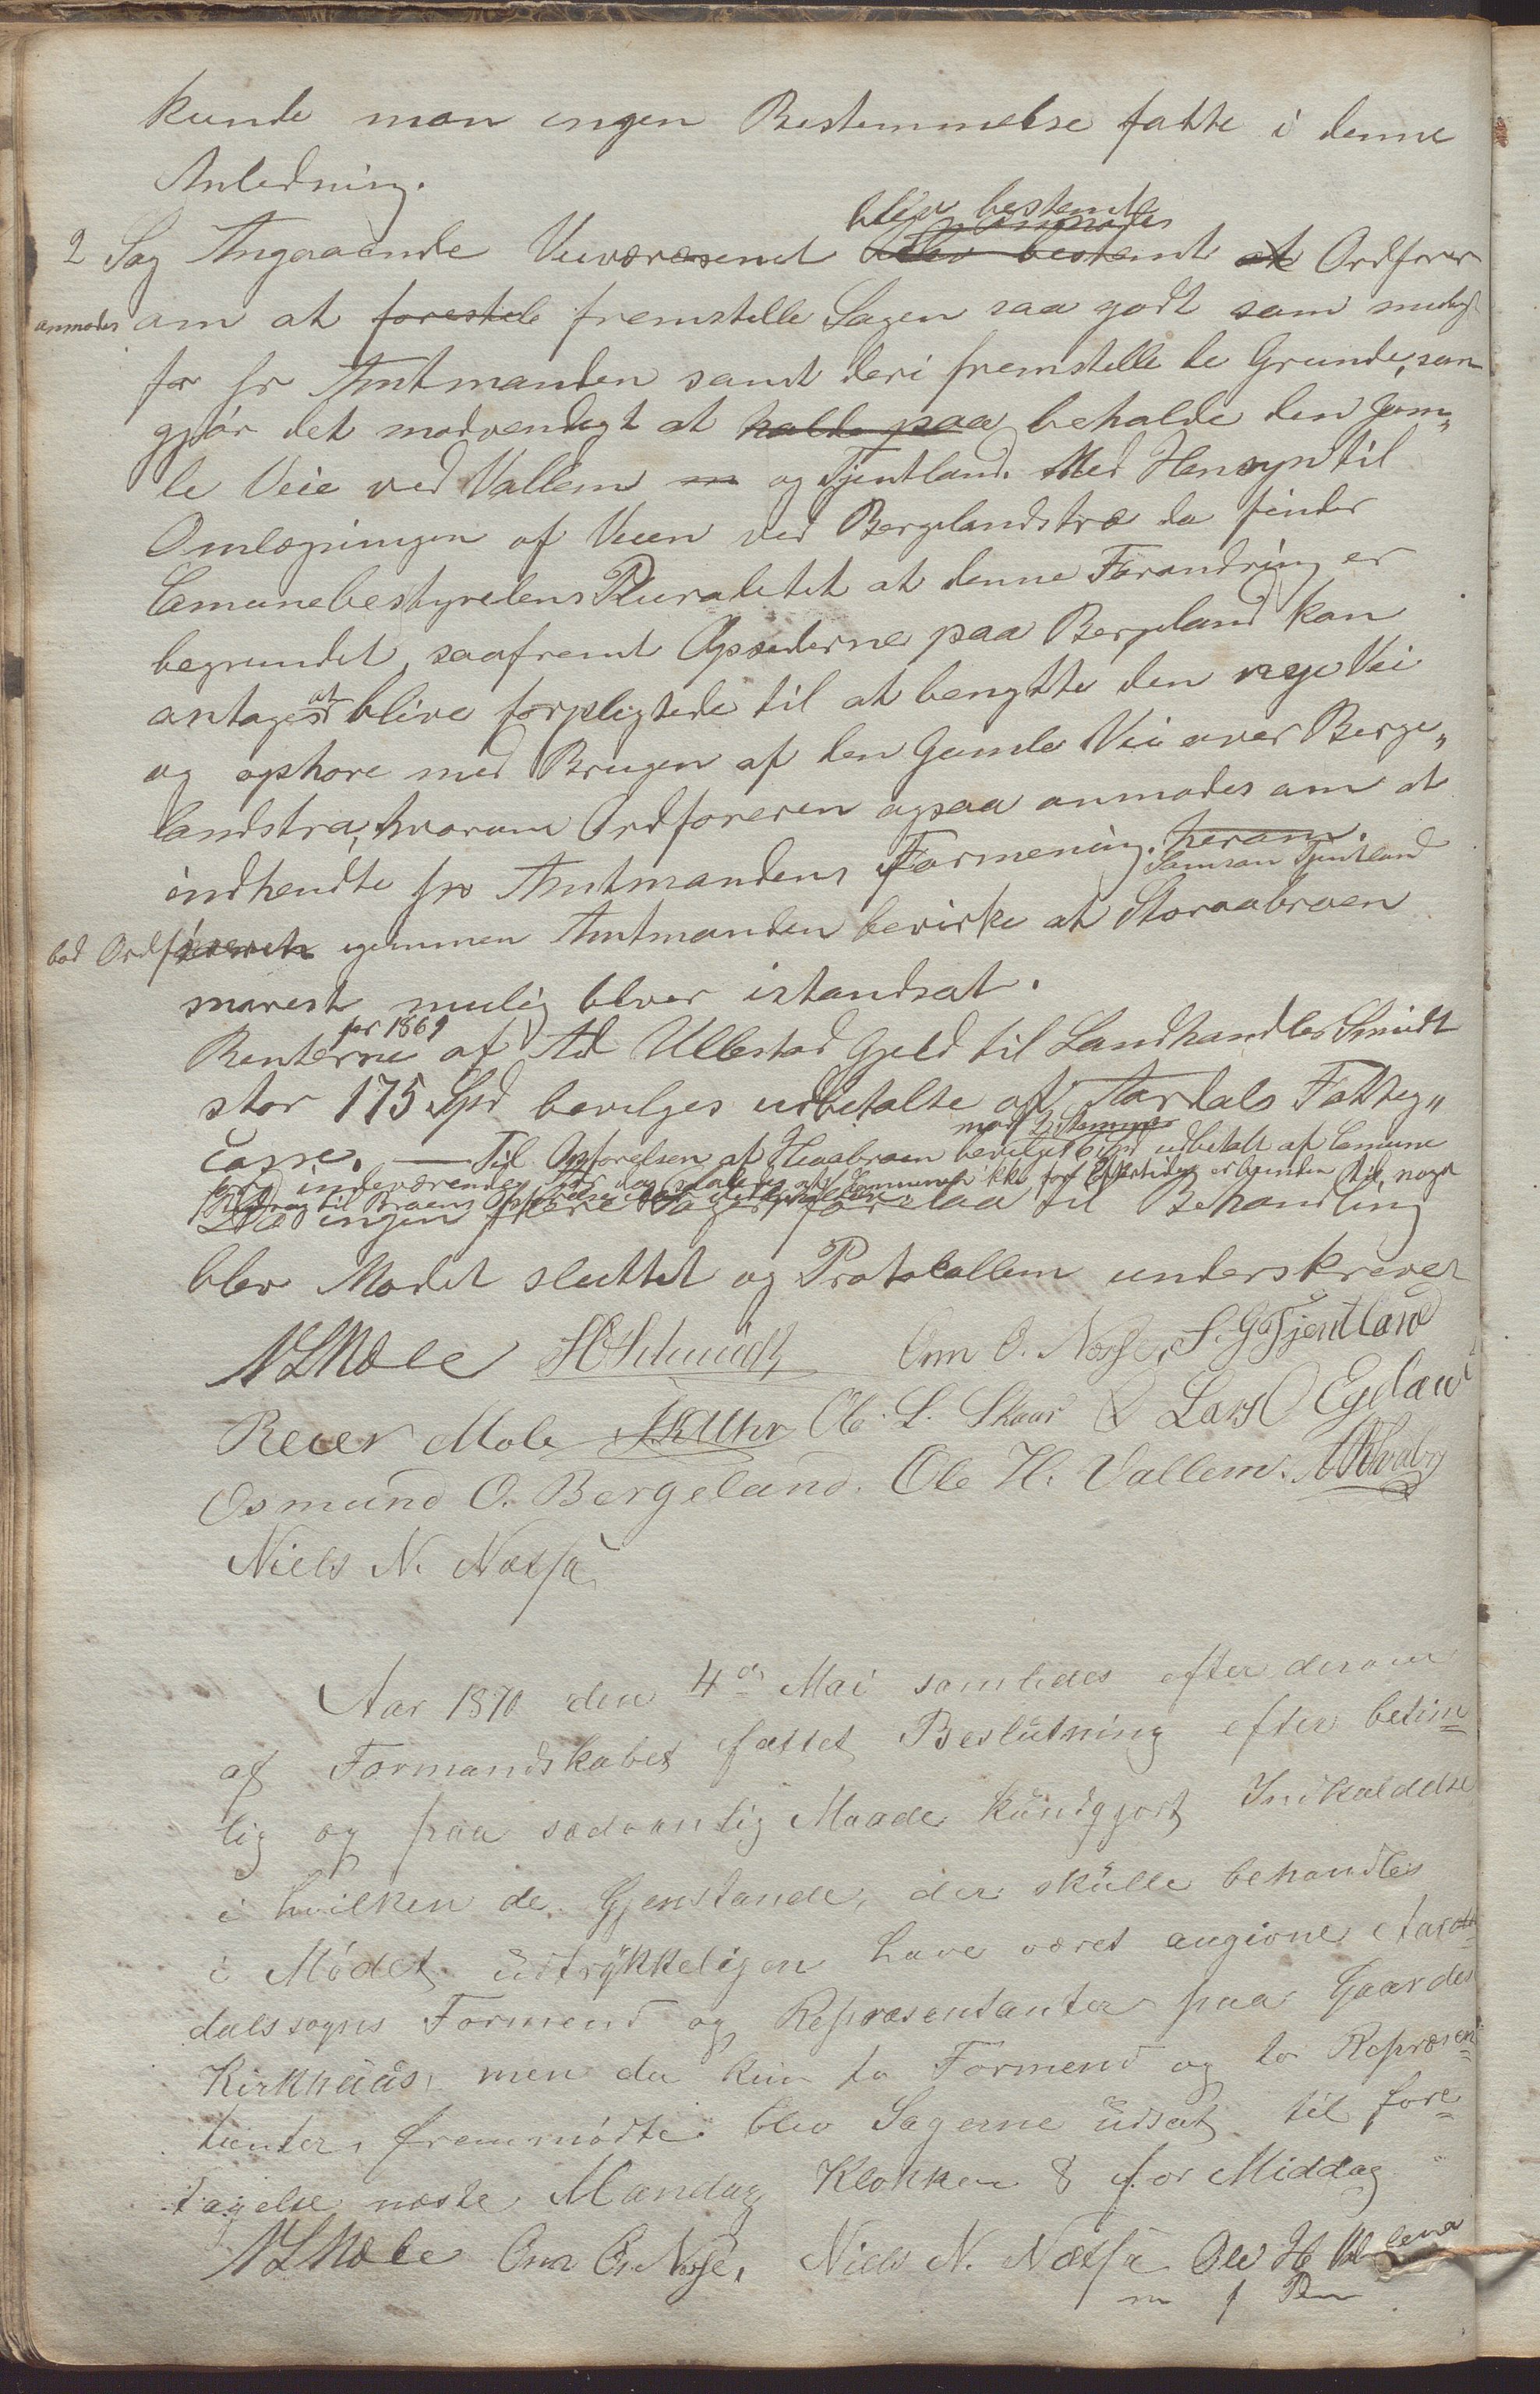 kunde man ingen Bestemmelse fatte i denne
Anledning.
blev bestemt
anmodes
2 Sag Angaaende Veiværæsenet blev bestemt at Ordforer
anmodes om at forestele fremstille Sagen saa godt som mulig
for hr Amtmanden samt deri fremstille de Grunde, som
gjör det nodvendigt at holde paa beholde den gam„
le Veie ved Vallem og Tjentland. Med Hensyn til
Omlægningen af Veien ved Bergelandstræ da finder
Comunebestyrelens Pluralitet at denne Forandring er
begrundet, saafremt Opsiderne paa Bergeland kan
antages at blive forpligtede til at benytte den nye Vei
og ophore med Brugen af den Gamle Vei over Berge„
landstra, hvorom Ordforeren ogsaa anmodes om at
indhendte hr Amtmandens Formening. herom.
Samson Tjentland
bad Ordföreren igjennem Amtmanden bevirke at Storaabroen
snarest mulig bliver istandsat.
for 1869
Renterne af Ad Ullestad Gjeld til Landhandler Smidt
stor 175 Spd bevilges udbetalte af Aardals Fattig„
casse. — Til Opforelsen af Hiaabroen bevilget 6 Spd udbetalt af Comune
mod 2 Stemmer
for indeværende Aar og vedtages at Communen ikke for Eftertiden er bunden til noget
Bidrag til Broens Opförelse eller vedligehold
Da ingen flere Sager forelaa til Behandling
blev Modet sluttet og Protokollem underskrevet
N L Mæle H Schmidt Onn O. Nesse, S. G Tjentland
Reier Mole Ole L. Skaar Lars O Egeland
Osmund O. Bergeland. Ole H. Vallem.
Niels N. Næsse
Aar 1870 den 4de Mai samledes efter derom
af Formandskabet fattet Beslutning efter betim=
lig og paa sædvanlig Maade kundgjort Indkaldelse
i hvilken de Gjenstande, der skulle behandles
i Mödet udtrykkeligen have været angivne Aar=
dals sogns Formend og Repræsentanter paa Gaarden
Kirkhuus, men da kun to Formend og to Repræsen=
tanter fremmödte blev Sagerne udsat til fore=
tagelse næste Mandag Klokken 8 for Middag
N L Mæle Onn O. Nesse, Niels N. Næsse Ole H Vallem
m f Pen